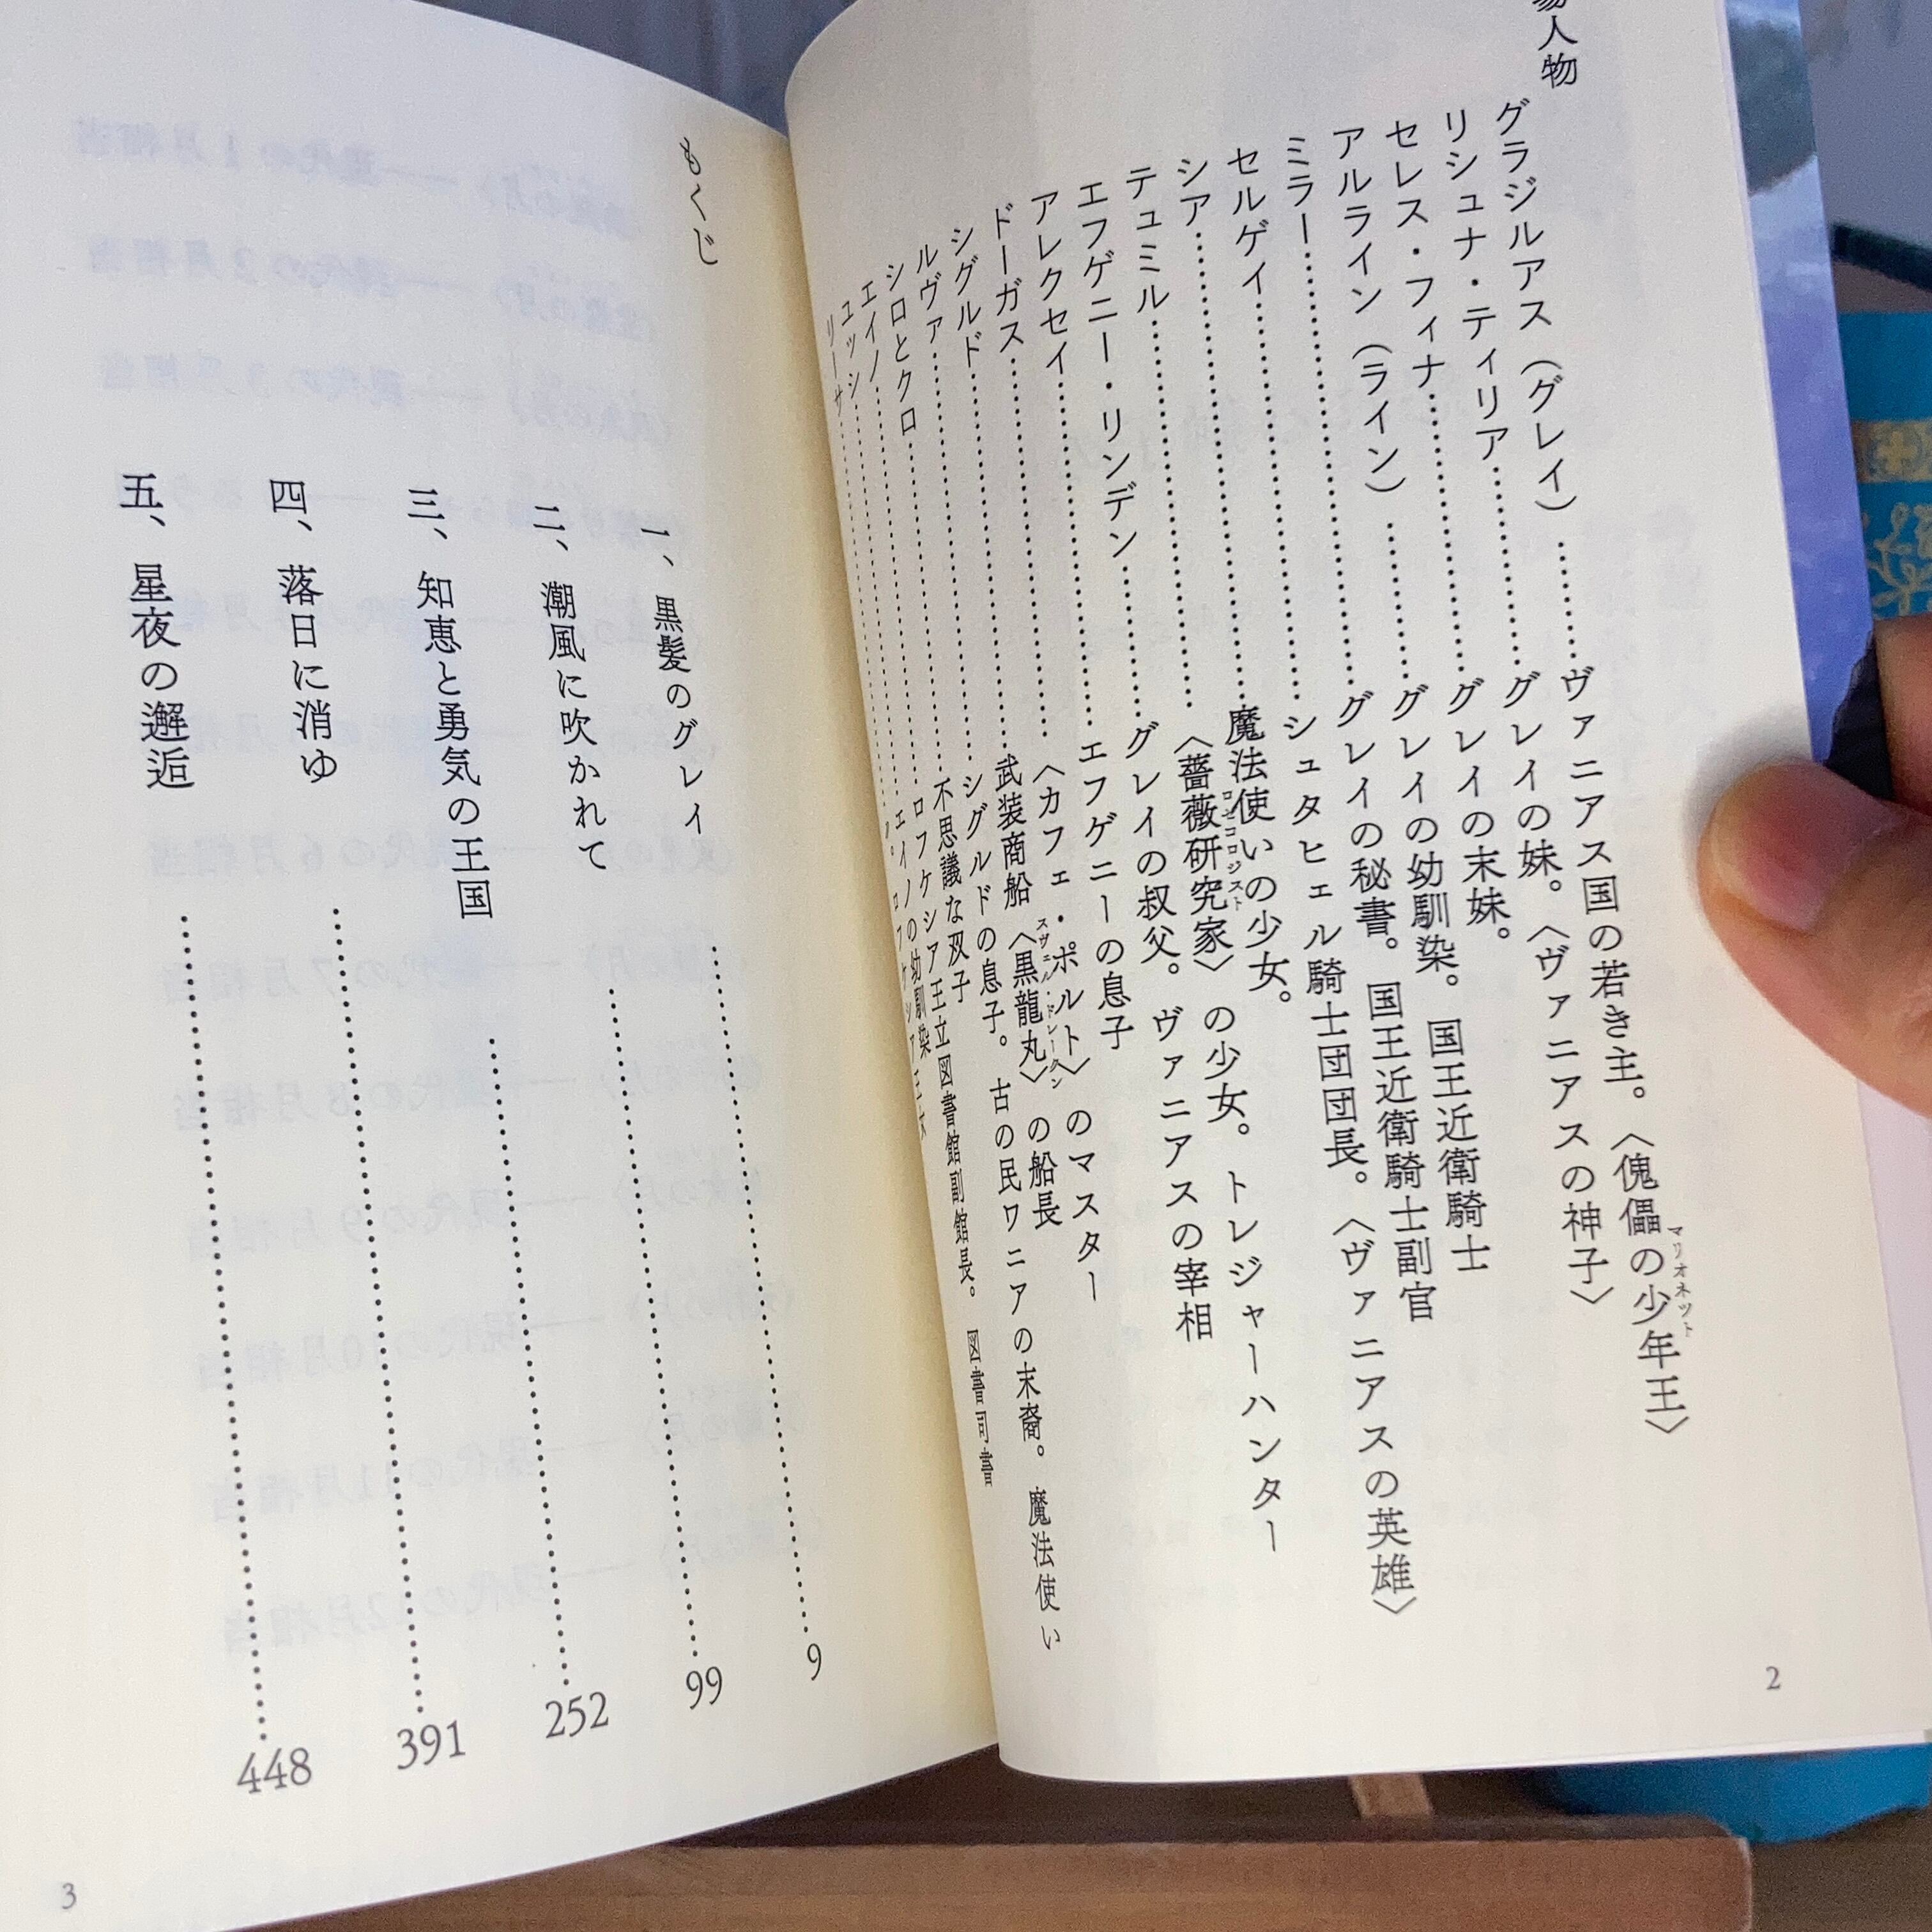 人物
グラジルアス（グレイ）……ヴァニアス国の若き主。〈傀儡の少年王〉
マリオネット
リシュナ・ティリア……グレイの妹。〈ヴァニアスの神子〉
セレス・フィナ……グレイの末妹。
アルライン（ライン）……グレイの幼馴染。国王近衛騎士
ミラー……グレイの秘書。国王近衛騎士副官
セルゲイ……シュタヒェル騎士団団長。〈ヴァニアスの英雄〉
シア……魔法使いの少女。
テュミル……〈薔薇研究家〉の少女。トレジャーハンター
ロゼコロジスト
エフゲニー・リンデン……グレイの叔父。ヴァニアスの宰相
アレクセイ……エフゲニーの息子
ドーガス……〈カフェ・ポルト〉のマスター
シグルド……武装商船〈黒龍丸〉の船長
ルヴァ……シグルドの息子。古の民ワニアの末裔。魔法使い
シロとクロ……不思議な双子
エイノ……ロフケシア王立図書館副館長。図書司書
ユッシ……エイノの幼馴染
リーサ……
2
もくじ
一、黒髪のグレイ……9
二、潮風に吹かれて……99
三、知恵と勇気の王国……252
四、落日に消ゆ……391
五、星夜の邂逅……448
3